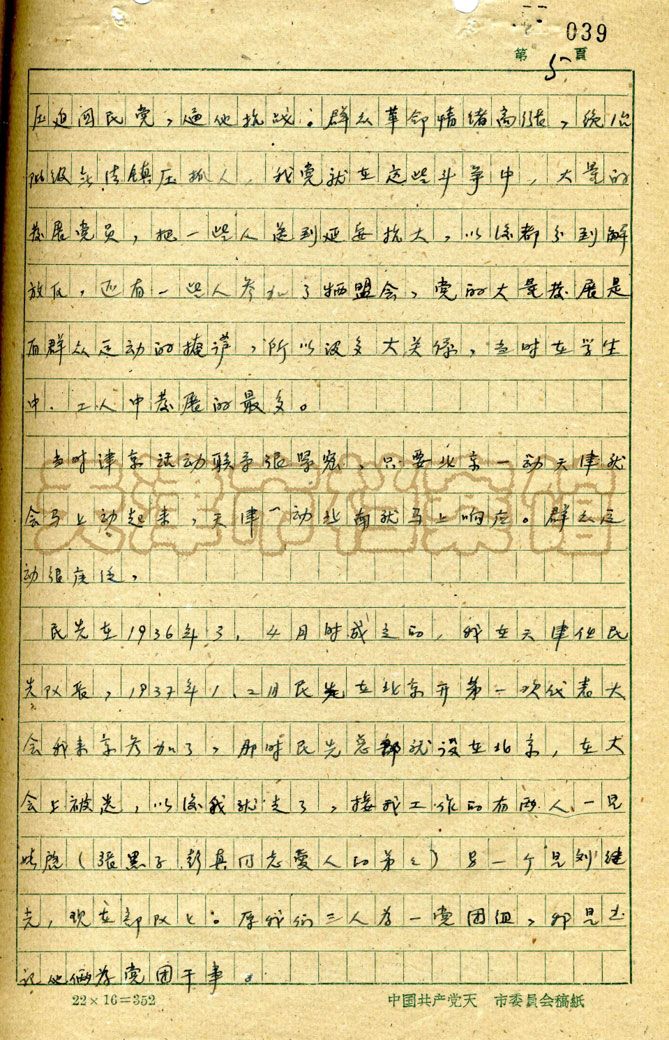 039
第5頁
压迫国民党，逼他抗战。群众革命情绪高涨，统治
阶级无法镇压抓人，我党就在这些斗争中，大量的
发展党员，把一些人送到延安抗大，以后都分到解
放区，还有一些人参加了牺盟会，党的大量发展是
有群众运动的掩护，所以没多大关系，当时在学生
中、工人中发展的最多。
当时津京活动联系很紧密，只要北京一动天津就
会马上动起来，天津一动北京就马上响应。群众运
动很广泛，
民先在1936年3、4月时成立的，我在天津任民
先队长，1937年1、2月民先在北京开第一次代表大
会我来京参加了，那时民先总部就设在北京，在大
会上被选，以后我就走了，接我工作的有两人一是
（张黑子，彭真同志爱人的弟弟）另一个是刘继
先，现在部队上。原我们三人为一党团组，我是书
记他俩为党团干事。
22×16=352
中国共产党天 市委員会稿紙
天津市档案馆